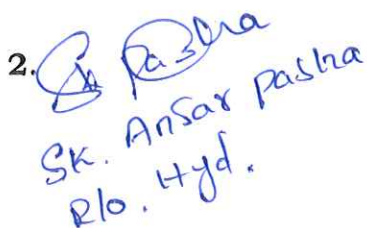 2. Sk Pasha
SK. Ansar pasha
R/o. Hyd.